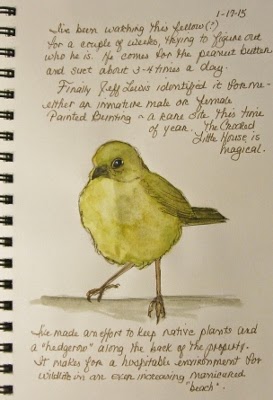 1-17-15
I've been watching this fellow(?)
for a couple of weeks, trying to figure out
who he is. He comes for the peanut butter
and suet about 3-4 times a day.
Finally Jeff Lewis identified it for me -
either an immature male or female
Painted Bunting - a rare site this time
of year. The Crooked
Little House is
magical.
I've made an effort to keep native plants and
a "hedgerow" along the back of the property.
It makes for a hospitable environment for
wildlife in an ever increasing manicured
"beach".